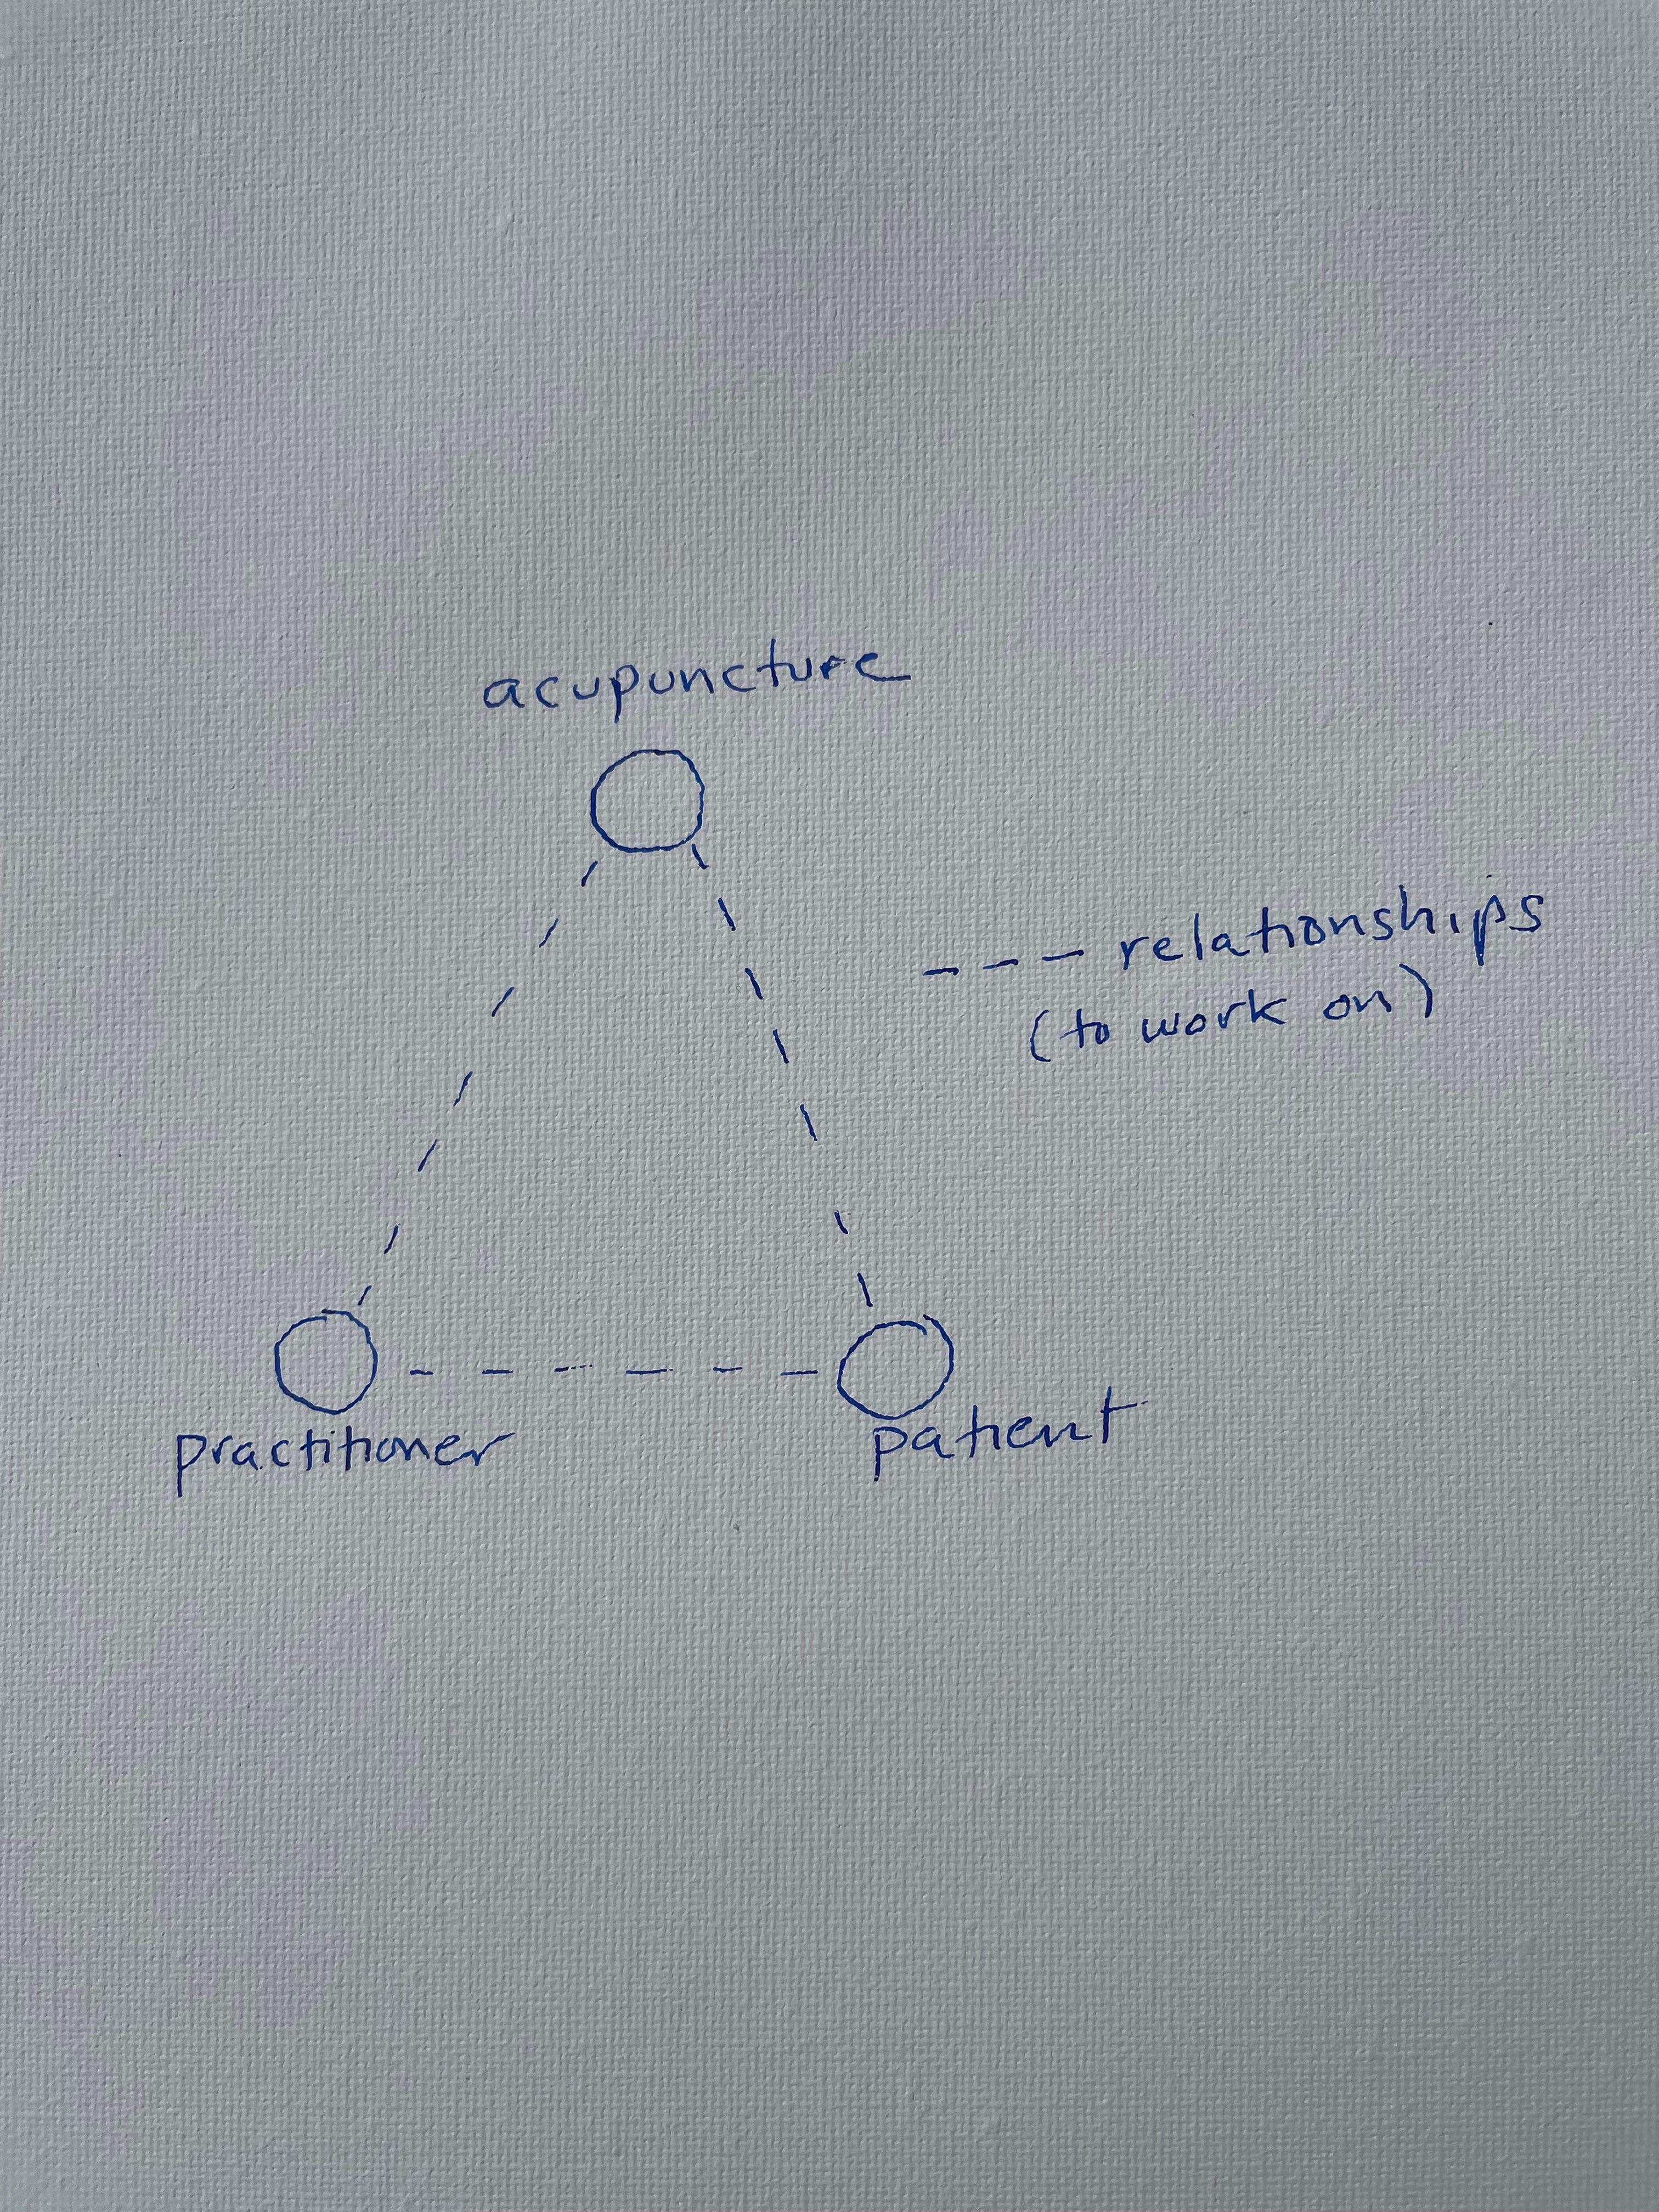 acupuncture
--- relationships
(to work on)
practitioner
patient